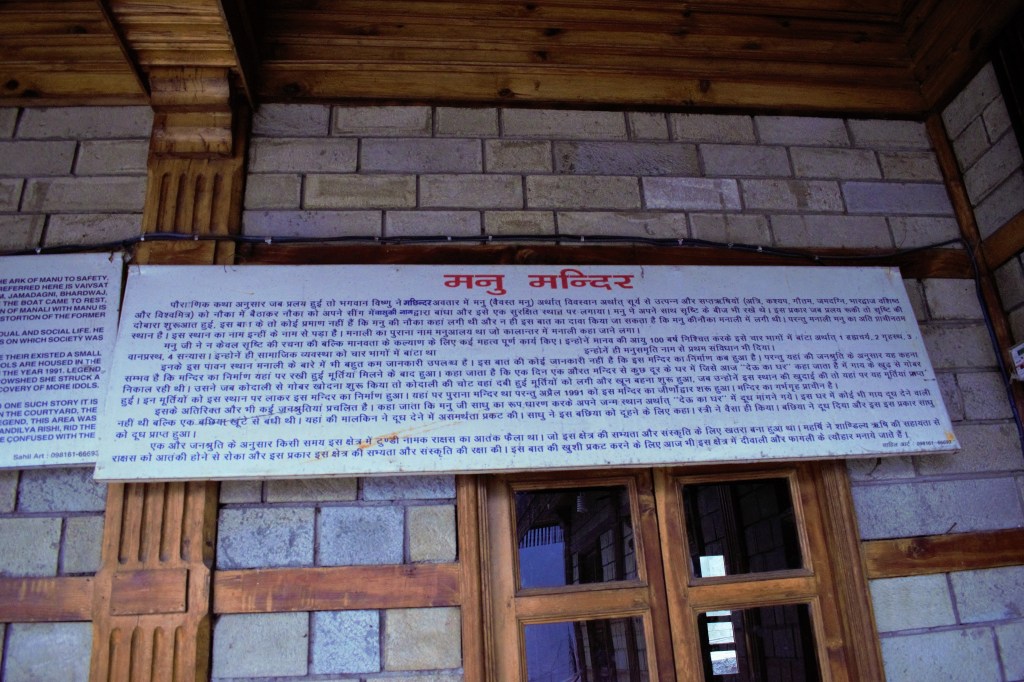 मनु मन्दिर
पौराणिक कथा अनुसार जब प्रलय हुई तो भगवान विष्णु ने मछिन्दर अवतार में मनु (वैवस्त मनु) अर्थात् विवस्वान अर्थात् सूर्य से उत्पन्न और सप्तऋषियों (अत्रि, कश्यप, गौतम, जमदग्नि, भारद्वाज वशिष्ट
और विश्वमित्र) को नौका में बैठाकर नौका को अपने सींग में वासुकी नाग द्वारा बांधा और इसे एक सुरक्षित स्थाह पर लगाया। मनु ने अपने साथ सृष्टि के बीज भी रखे थे। इस प्रकार जब प्रलय रूकी तो सृष्टि की
दोबारा शुरूआत हुई, इस बात के तो कोई प्रमाण नहीं है कि मनु की नौका कहां लगी थी और न ही इस बात का दावा किया जा सकता है कि मनु की नौका मनाली में लगी थी। परन्तु मनाली मनु का अति प्राचीनतम
स्थान है। इस स्थान का नाम इन्हीं के नाम से पड़ा है। मनाली का पुराना नाम मनुआलय था जो कालान्तर में मनाली कहा जाने लगा।
मनु जी ने न केवल सृष्टि की रचना की बल्कि मानवता के कल्याण के लिए कई महत्व पूर्ण कार्य किए। इन्होंने मानव की आयु 100 वर्ष निश्चित करके इसे चार भागों में बांटा अर्थात् 1 ब्रह्मचर्य, 2 गृहस्थ, 3
वानप्रस्थ, 4 सन्यास। इन्होंने ही सामाजिक व्यवस्था को चार भागों में बांटा था इन्होंने ही मनुस्मृति नाम से प्रथम संविधान भी दिया।
इनके इस पावन स्थान मनाली के बारे में भी बहुत कम जानकारी उपलब्ध है। इस बात की कोई जानकारी नहीं है कि इस मन्दिर का निर्माण कब हुआ है। परन्तु यहां की जनश्रुति के अनुसार यह कहना
सम्भव है कि मन्दिर का निर्माण यहां पर रखी हुई मूर्तियों के मिलने के बाद हुआ। कहा जाता है कि एक दिन एक औरत मन्दिर से कुछ दूर के घर में जिसे आज "देऊ का घर" कहा जाता है में गाय के खुड से गोबर
निकाल रही थी। उसने जब कोदाली से गोबर खोदना शुरू किया तो कोदाली की चोट वहां दबी हुई मूर्तियों को लगी और खून बहना शुरू हुआ, जब उन्होंने इस स्थान की खुदाई की तो यहां पर यह मूर्तियां प्राप्त
हुई। इन मूर्तियों को इस स्थान पर लाकर इस मन्दिर का निर्माण हुआ। यहां पर पुराना मन्दिर था परन्तु अप्रैल 1991 को इस मन्दिर का जीर्णोद्वार शुरू हुआ। मन्दिर का गर्मगृह प्राचीन है।
इसके अतिरिक्त और भी कई जनश्रुतियां प्रचलित है। कहा जाता कि मनु जी साधु का रूप धारण करके अपने जन्म स्थान अर्थात् "देऊ का घर" में दूध मांगने गये। इस घर में कोई भी गाय दूध देने वाली
नहीं थी बल्कि एक बछिया खूंटे से बंधी थी। यहां की मालकिन ने दूध देने में असमर्थता प्रकट की। साधु ने इस बछिया को दूहने के लिए कहा। स्त्री ने वैसा ही किया। बछिया ने दूध दिया और इस इस प्रकार साधु
को दूध प्राप्त हुआ।
एक और जनश्रुति के अनुसार किसी समय इस क्षेत्र में टुण्डी नामक राक्षस का आतंक फैला था। जो इस क्षेत्र की सभ्यता और संस्कृति के लिए खतरा बना हुआ था। महर्षि ने शाण्डिल्य ऋषि की सहायता से
राक्षस को आतंकी होने से रोका और इस प्रकार इस क्षेत्र की सभ्यता और संस्कृति की रक्षा की। इस बात की खुशी प्रकट करने के लिए आज भी इस क्षेत्र में दीवाली और फागली के त्यौहार मनाये जाते हैं।
HE ARK OF MANU TO SAFETY.
REFERRED HERE IS VAIVSAT
JAMADAGNI, BHARDWAJ,
THE BOAT CAME TO REST,
N OF MANALI WITH MANU IS
ISTORTION OF THE FORMER
DUAL AND SOCIAL LIFE. HE
S ON WHICH SOCIETY WAS
THEIR EXISTED A SMALL
OLS ARE HOUSED IN THE
THE YEAR 1991. LEGEND
OWSHED SHE STRUCK A
COVERY OF MORE IDOLS.
D ONE SUCH STORY IT IS
THE COURTYARD, THE
EGEND, THIS AREA WAS
ANDILYA RISHI, RID THE
E CONFUSED WITH THE
Sahil Art : 098161-66692